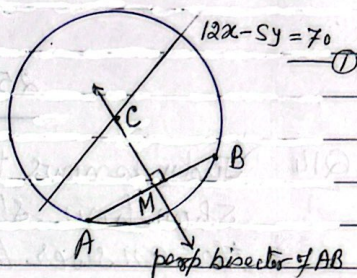 12x-5y=70
①
C
B
M
A
perp bisector of AB